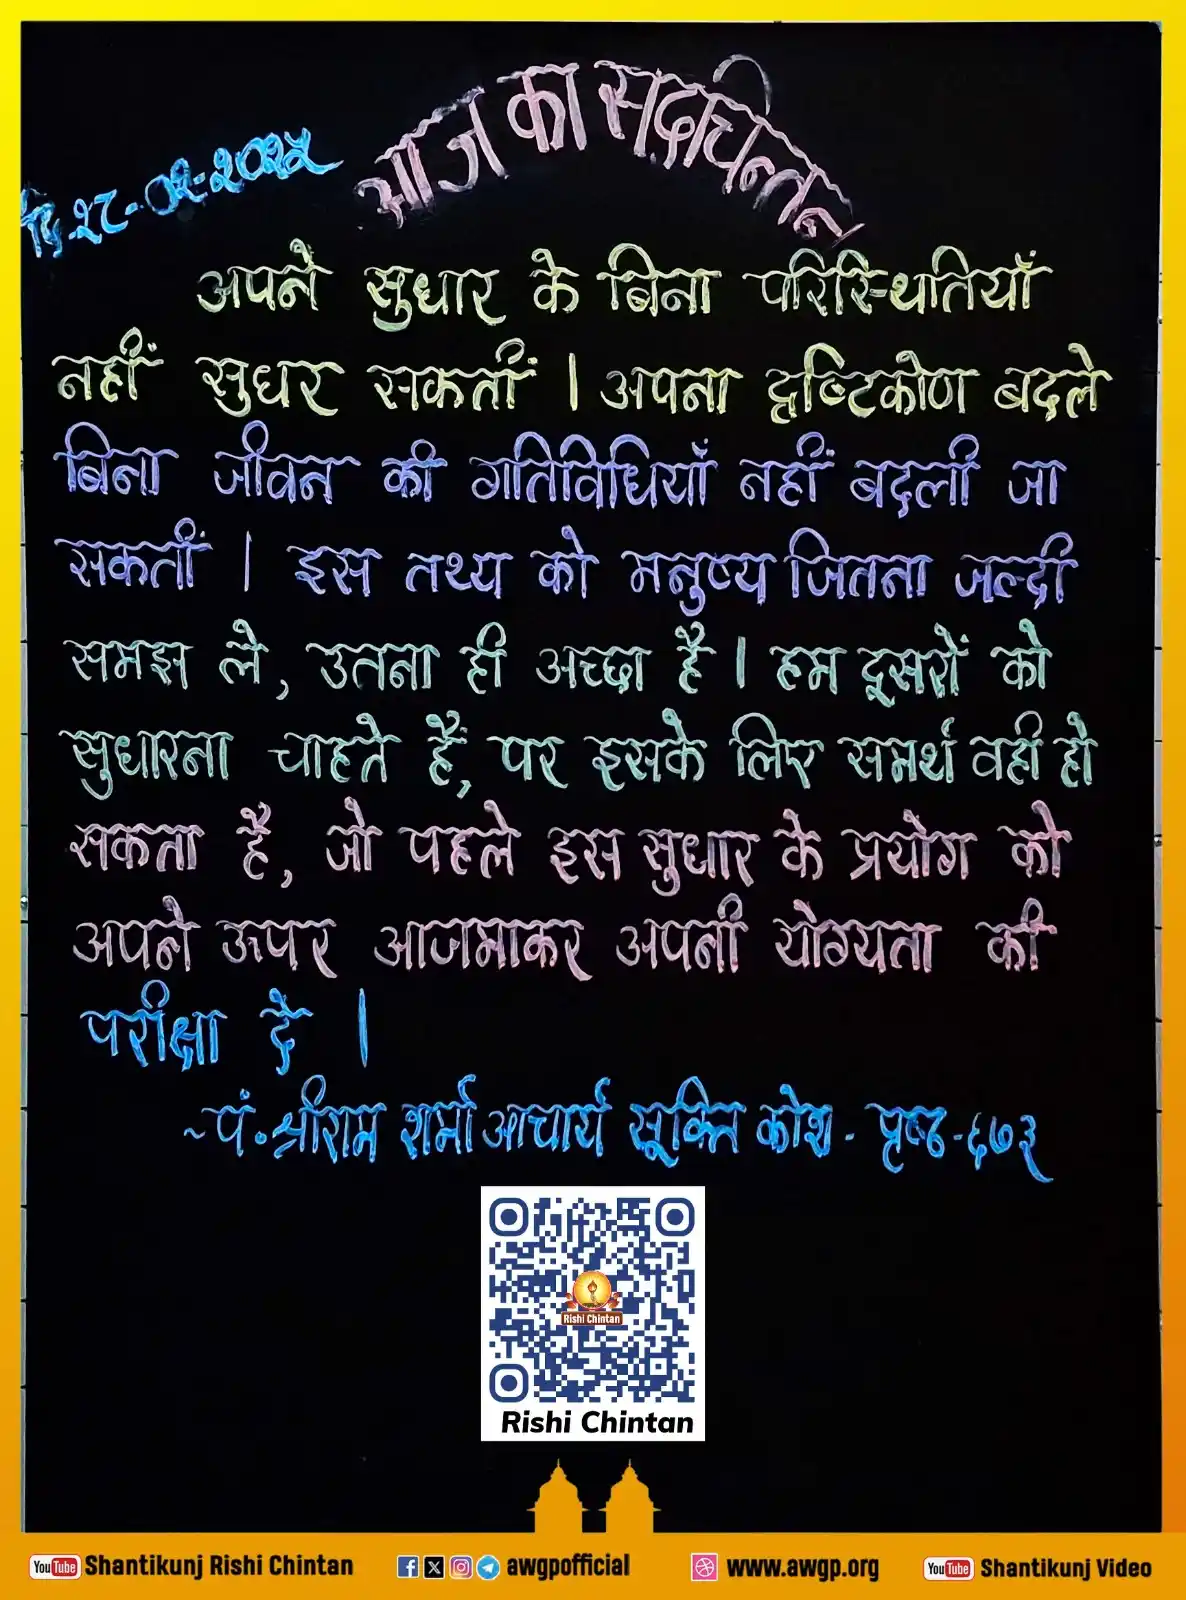 आज का सद्चिन्तन
दि.२८-०२-२०२५
अपने सुधार के बिना परिस्थितियाँ
नहीं सुधर सकतीं । अपना दृष्टिकोण बदले
बिना जीवन की गतिविधियाँ नहीं बदली जा
सकतीं । इस तथ्य को मनुष्य जितना जल्दी
समझ ले, उतना ही अच्छा है । हम दूसरों को
सुधारना चाहते हैं, पर इसके लिए समर्थ वही हो
सकता है, जो पहले इस सुधार के प्रयोग को
अपने ऊपर आजमाकर अपनी योग्यता की
परीक्षा दे ।
~पं.श्रीराम शर्मा आचार्य सूक्ति कोश- पृष्ठ-६७३
Rishi Chintan
Rishi Chintan
YouTube Shantikunj Rishi Chintan awgpofficial www.awgp.org YouTube Shantikunj Video